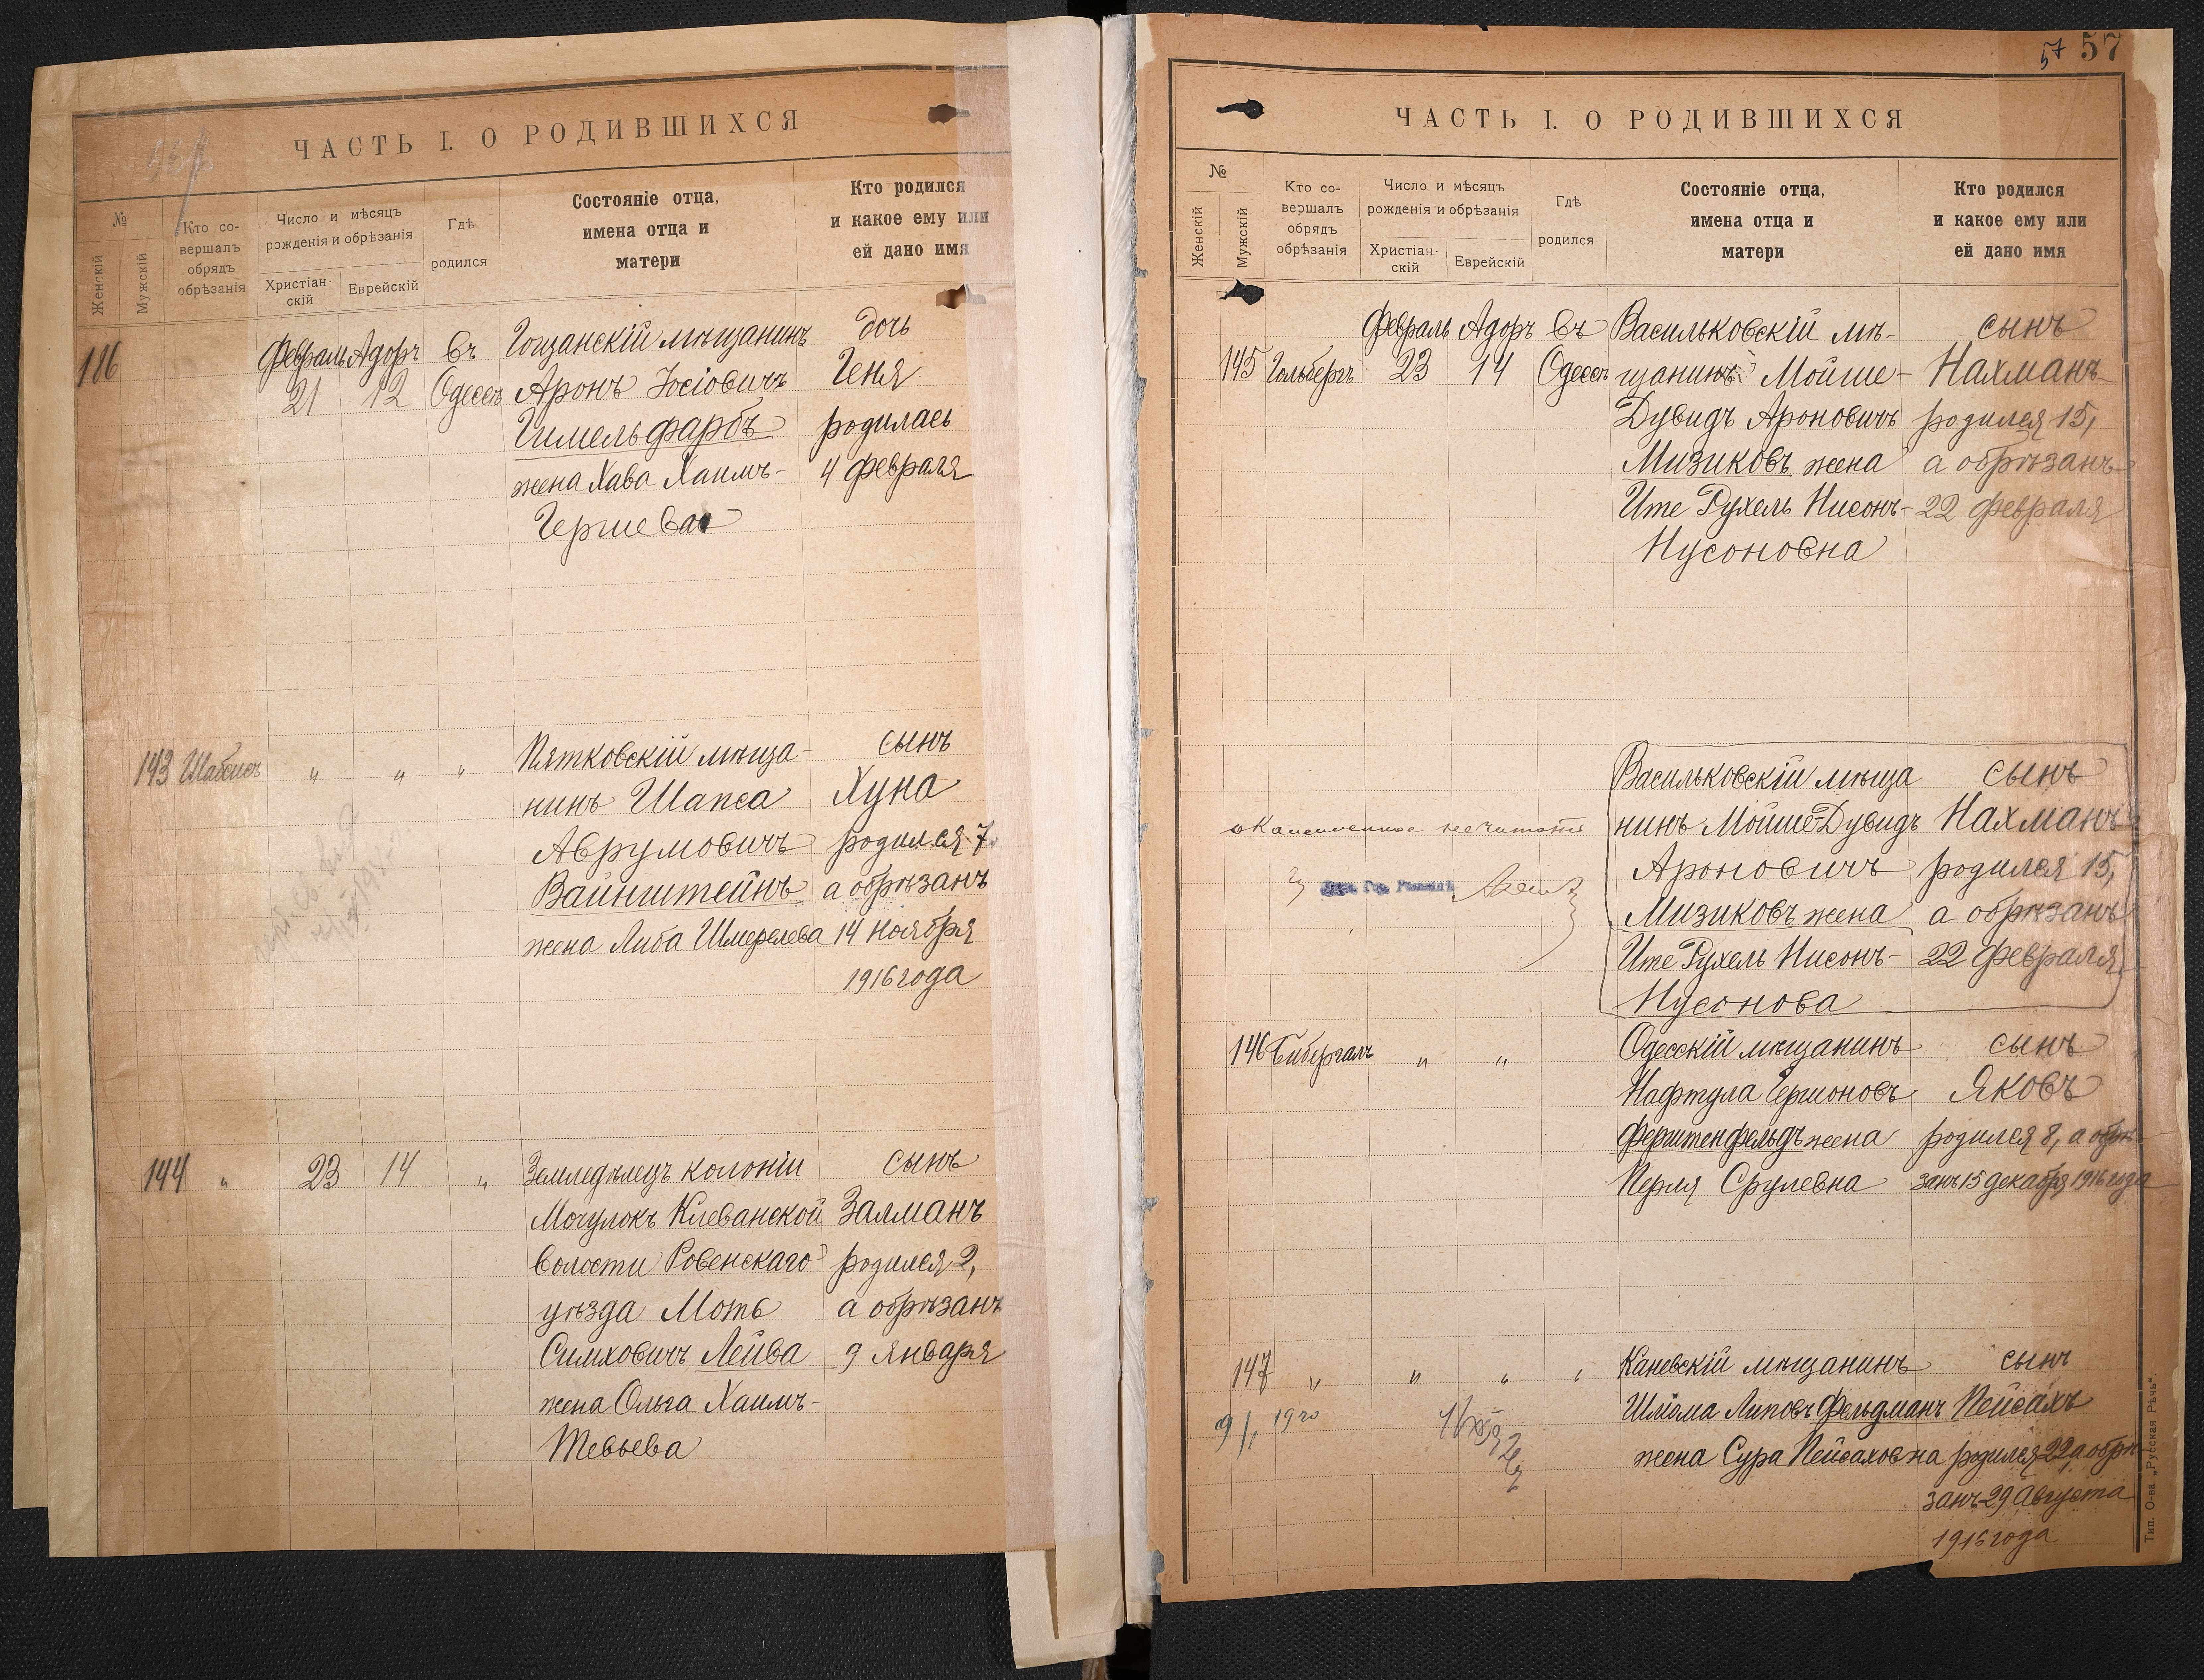 ЧАСТЬ I. О РОДИВШИХСЯ
№
Женскій
Мужскій
Кто со-
вершалъ
обрядъ
обрѣзанія
Число и мѣсяцъ
рожденія и обрѣзанія
Христіан-
скій
Еврейскій
Гдѣ
родился
Состояніе отца,
имена отца и
матери
Кто родился
и какое ему или
ей дано имя
Февраль Адоръ въ Гощанскій мѣщанинъ дочь
116 21 12 Одессѣ Аронъ Іосіовичъ Геня
Гимельфарбъ родилась
жена Хава Хаимъ- 4 февраля
Гершева
Пятковскій мѣща- сынъ
143 Шабсисъ " " " нинъ Шапса Хуна
Аврумовичъ родился 7,
Вайнштейнъ а обрѣзанъ
жена Либа Шмерелева 14 Ноября
1916 года
144 " 23 14 " Земледѣлецъ колоніи сынъ
Мочулокъ Клеванской Залманъ
волости Ровенскаго родился 2,
уѣзда Моть а обрѣзанъ
Симховичъ Лейва 9 Января
жена Ольга Хаимъ-
Тевьева
57 57
ЧАСТЬ I. О РОДИВШИХСЯ
№
Женскій
Мужскій
Кто со-
вершалъ
обрядъ
обрѣзанія
Число и мѣсяцъ
рожденія и обрѣзанія
Христіан-
скій
Еврейскій
Гдѣ
родился
Состояніе отца,
имена отца и
матери
Кто родился
и какое ему или
ей дано имя
Февраль Адоръ въ Васильковскій мѣ- сынъ
145 Гольбергъ 23 14 Одессѣ щанинъ Мойше- Нахманъ
Дувидъ Ароновичъ родился 15,
Мизиковъ жена а обрѣзанъ
Ите Рухель Нисонъ- 22 февраля
Нусоновна
Васильковскій мѣща сынъ
окаймленное не читать нинъ Мойше-Дувидъ Нахманъ
Ароновичъ родился 15,
Мизиковъ жена а обрѣзанъ
Ите Рухель Нисонъ- 22 февраля
Нусонова
146 Бибергалъ " " Одесскій мѣщанинъ сынъ
Нафтула Гершоновъ Яковъ
Ферштенфельдъ жена родился 8, а обрѣ-
Перля Срулевна занъ 15 декабря 1916 года
147 " " " " Каневскій мѣщанинъ сынъ
9/1 1920 Шлёма Липовъ Фельдманъ Пейсахъ
жена Сура Пейсаховна родился 22, а обрѣ-
занъ 29 Августа
1916 года
Тип. О-ва „Русская Рѣчь".